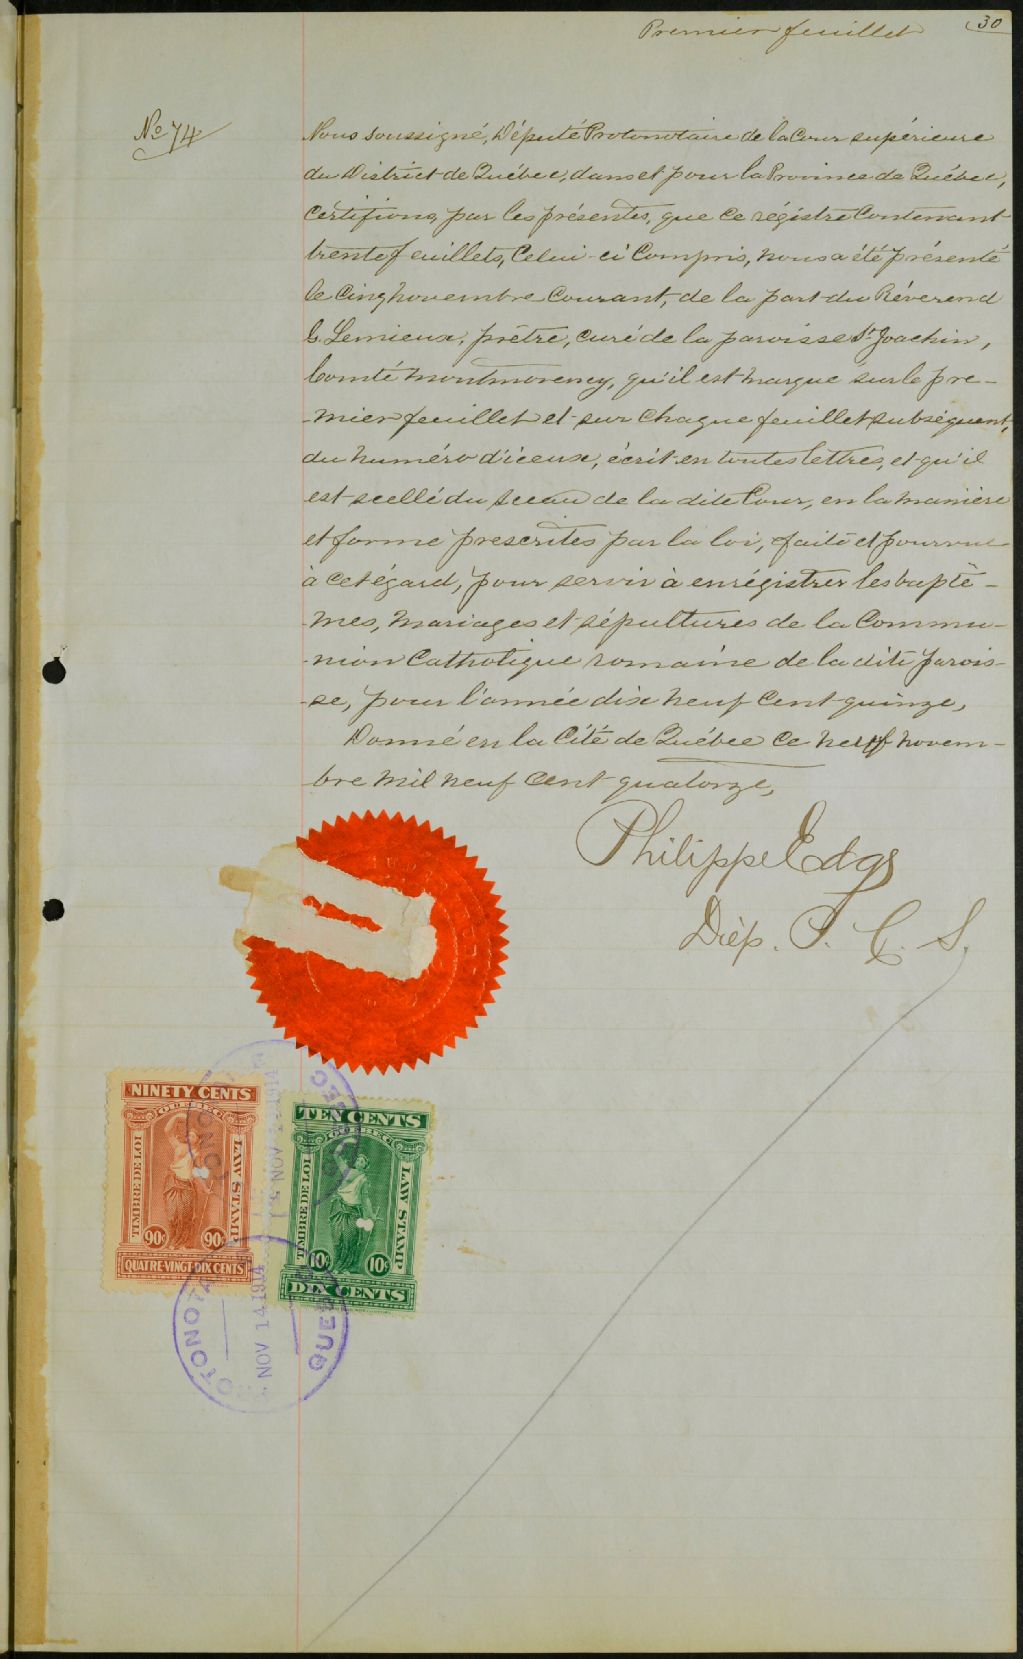 Premier feuillet
30
No 74
Nous soussigné, Député Protonotaire de la Cour supérieure
du District de Québec, dans et pour la Province de Québec,
certifions, par les présentes, que ce régistre contenant
trente feuillets, celui-ci compris, nous a été présenté
le cinq novembre courant, de la part du Révérend
Lemieux, prêtre, curé de la paroisse St Joachim,
Comté Montmorency, qu'il est marqué sur le pre-
-mier feuillet et sur chaque feuillet subséquent,
du numéro d'iceux, écrit en toutes lettres, et qu'il
est scellé du sceau de la dite Cour, en la manière
et forme prescrites par la loi, faite et pourvue
à cet égard, pour servir à enrégistrer les baptê-
-mes, mariages et sépultures de la Commu-
-nion Catholique romaine de la dite parois-
-se, pour l'année dix neuf cent quinze,
Donné en la Cité de Québec ce neuf novem-
-bre mil neuf cent quatorze,
Philippe Edge
Dép. P. C. S.
NINETY CENTS
QUEBEC
TIMBRE DE LOI
LAW STAMP
90c 90c
QUATRE-VINGT-DIX CENTS
TEN CENTS
QUEBEC
TIMBRE DE LOI
LAW STAMP
10c 10c
DIX CENTS
NOV 1 1914
QUEBEC
NOV 14 1914